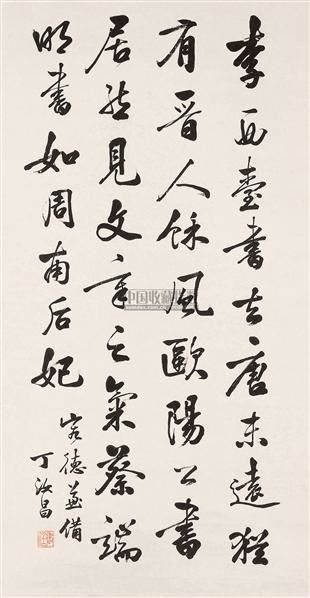 李西臺書去唐未遠猶
有晉人餘風歐陽公書
居然見文章之氣蔡端
明書如周南后妃
容德兼備
丁汝昌
中国收藏